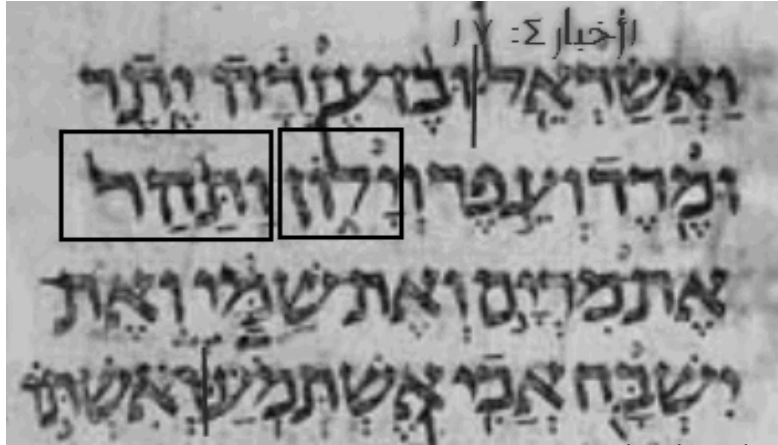 ١أخبار ٤: ١٧
וַאֲשַׂרְאֵל וּבֶן עֶזְרָה יֶתֶר
וּמֶרֶד וְעֵפֶר וְיָלוֹן וַתַּהַר
אֶת מִרְיָם וְאֶת שַׁמַּי וְאֶת
יִשְׁבָּח אֲבִי אֶשְׁתְּמֹעַ וְאִשְׁתּוֹ